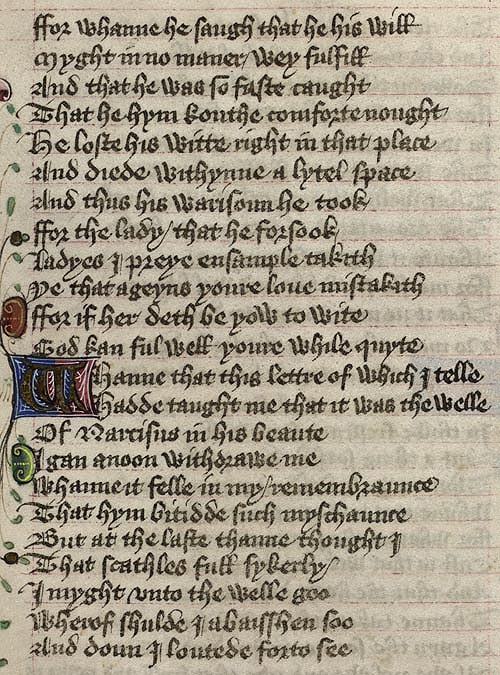 ffor whanne he saugh that he his will
Myght in no maner / wey fulfill
And that he was so faste caught
That he hym kouthe comforte nought
He loste his witte right in that place
And diede withynne a lytel space
And thus his warisoun he took
ffor the lady / that he forsook
Ladyes I preye ensample takith
Ye that ageyns youre loue mistakith
ffor if her deth be yow to wite
God kan ful well youre while quyte
Whanne that this lettre of which I telle
Hadde taught me that it was the welle
Of Narcisus in his beaute
I gan anoon withdrawe me
Whanne it felle in my / remembraunce
That hym bitidde such myschaunce
But at the laste thanne thought I
That scathles full sykerly /
I myght vnto the welle goo
Wherof shulde I abaisshen soo
And doun I loutede forto see